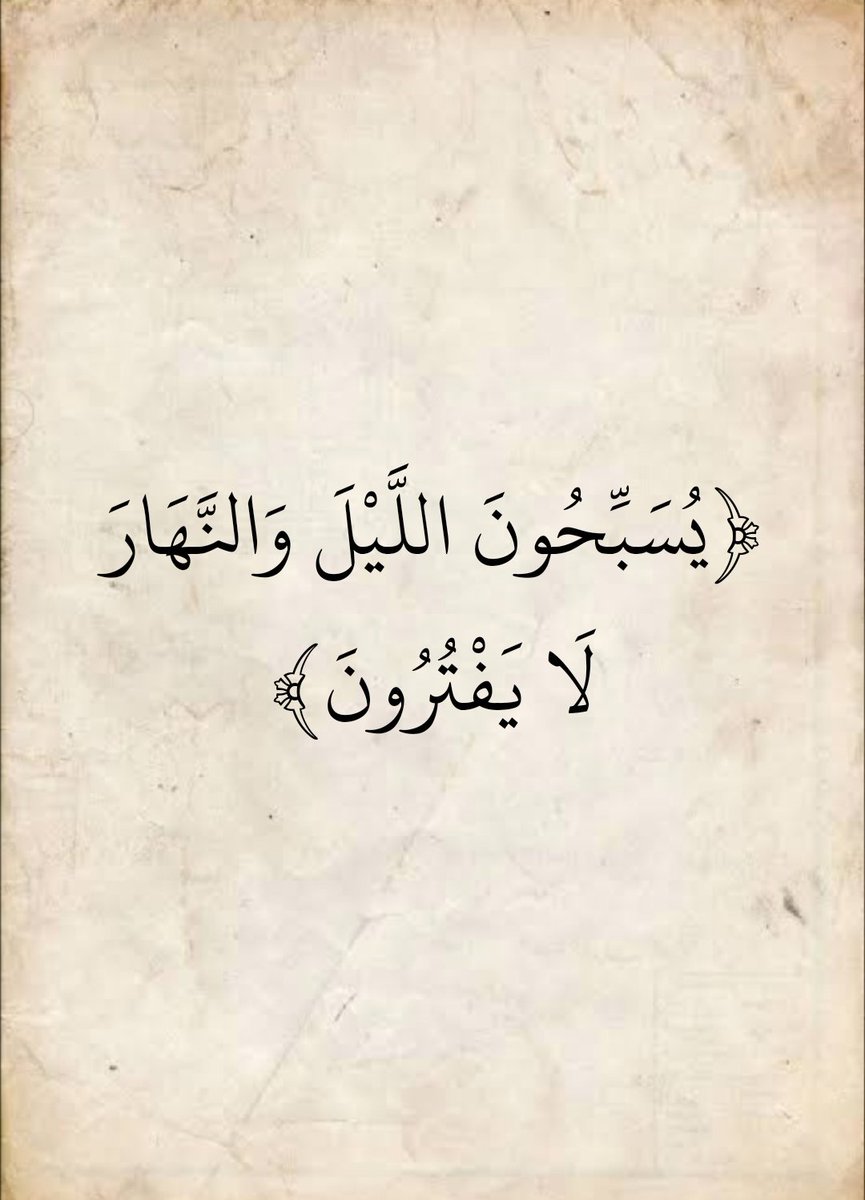 ﴿يُسَبِّحُونَ اللَّيْلَ وَالنَّهَارَ
لَا يَفْتُرُونَ﴾